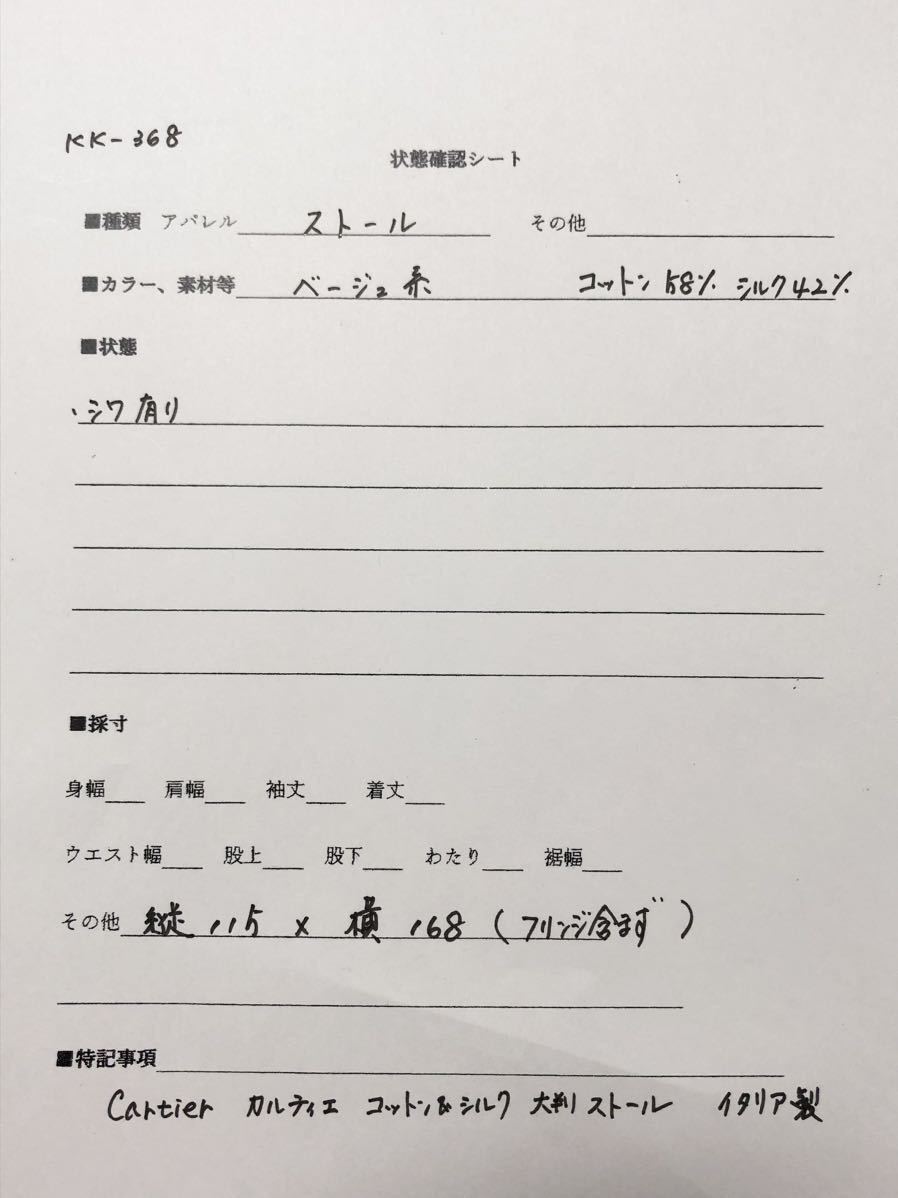 KK-368
状態確認シート
■種類 アパレル ストール その他
■カラー、素材等 ベージュ系 コットン58% シルク42%
■状態
・シワ有り
■採寸
身幅 肩幅 袖丈 着丈
ウエスト幅 股上 股下 わたり 裾幅
その他 縦115 x 横168 (フリンジ含まず)
■特記事項
Cartier カルティエ コットン&シルク 大判ストール イタリア製